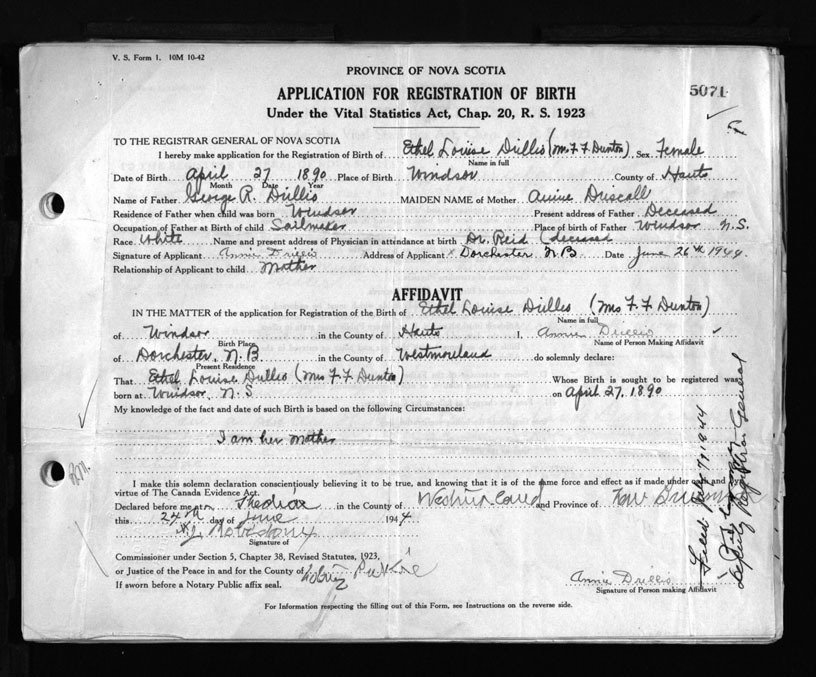 V. S. Form 1. 10M 10-42
PROVINCE OF NOVA SCOTIA
5071
APPLICATION FOR REGISTRATION OF BIRTH
Under the Vital Statistics Act, Chap. 20, R. S. 1923
TO THE REGISTRAR GENERAL OF NOVA SCOTIA
I hereby make application for the Registration of Birth of Ethel Louise Drillio (Mrs F. F. Dunton) Sex Female
Name in full
Date of Birth April 27 1890 Place of Birth Windsor County of Hants
Month Date Year
Name of Father George R. Drillio MAIDEN NAME of Mother Annie Driscoll
Residence of Father when child was born Windsor Present address of Father Deceased
Occupation of Father at Birth of child Sailmaker Place of birth of Father Windsor N.S.
Race White Name and present address of Physician in attendance at birth Dr. Reid (deceased
Signature of Applicant Annie Drillio Address of Applicant x Dorchester N.B Date June 26th 1944.
Relationship of Applicant to child Mother
AFFIDAVIT
IN THE MATTER of the application for Registration of the Birth of Ethel Louise Drillio (Mrs F. F Dunton)
Name in full
of Windsor in the County of Hants I, Annie Drillio
Birth Place Name of Person Making Affidavit
of Dorchester, N.B in the County of Westmorland do solemnly declare:
Present Residence
That Ethel Louise Drillio (Mrs F. F Dunton) Whose Birth is sought to be registered was
born at Windsor, N. S on April 27, 1890
My knowledge of the fact and date of such Birth is based on the following Circumstances:
I am her Mother
I make this solemn declaration conscientiously believing it to be true, and knowing that it is of the same force and effect as if made under oath and
virtue of The Canada Evidence Act.
Declared before me at in the County of Westmorland and Province of New Brunswick
this day of June 1944
Signature of
Commissioner under Section 5, Chapter 38, Revised Statutes, 1923,
or Justice of the Peace in and for the County of Notary Public
If sworn before a Notary Public affix seal.
Annie Drillio
Signature of Person making Affidavit
For Information respecting the filling out of this Form, see Instructions on the reverse side.
Deputy Registrar General